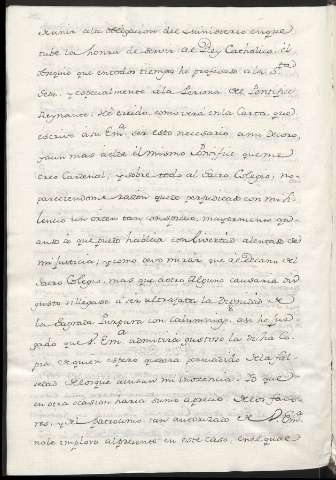 reunir ala obligacion del Ministerio en que
tube la honra de servir al Rey Catholico, el
obsequio que en todos tiempos he profesado ala S.ta
Sede, y especialmente ala Persona del Pontifice
Reynante; hé creido, como verá en la Carta que
escrivo a su Em.a ser esto necesario, a mi Decoro,
y aun mas a el mismo Pontifice que me
creo Cardenal, y sobre todo al Sacro Colegio; no
pareciendome razon quede perjudicado con mi si-
lencio un orden tan conspicuo, mayormente qu-
ando se que puedo hablar con libertad alentado de
mi Justicia; y como devo mirar que al Decano del
Sacro Colegio, mas que a otro alguno causaria dis
gusto si llegase a ser ultrajada la Dignidad de
la Sagrada Purpura con calumnias, asi he juz-
gado que V. Em.a admitirá gustoso la dicha Co-
pia, de quien espero quedará persuadido de la fal-
sedad de los que acusan mi inocencia. Lo que
en otra ocasion haria sumo aprecio de los favo-
res, y de Patrocinio tan autorizado de V. Em.a
no le imploro al presente en este caso, en el qual